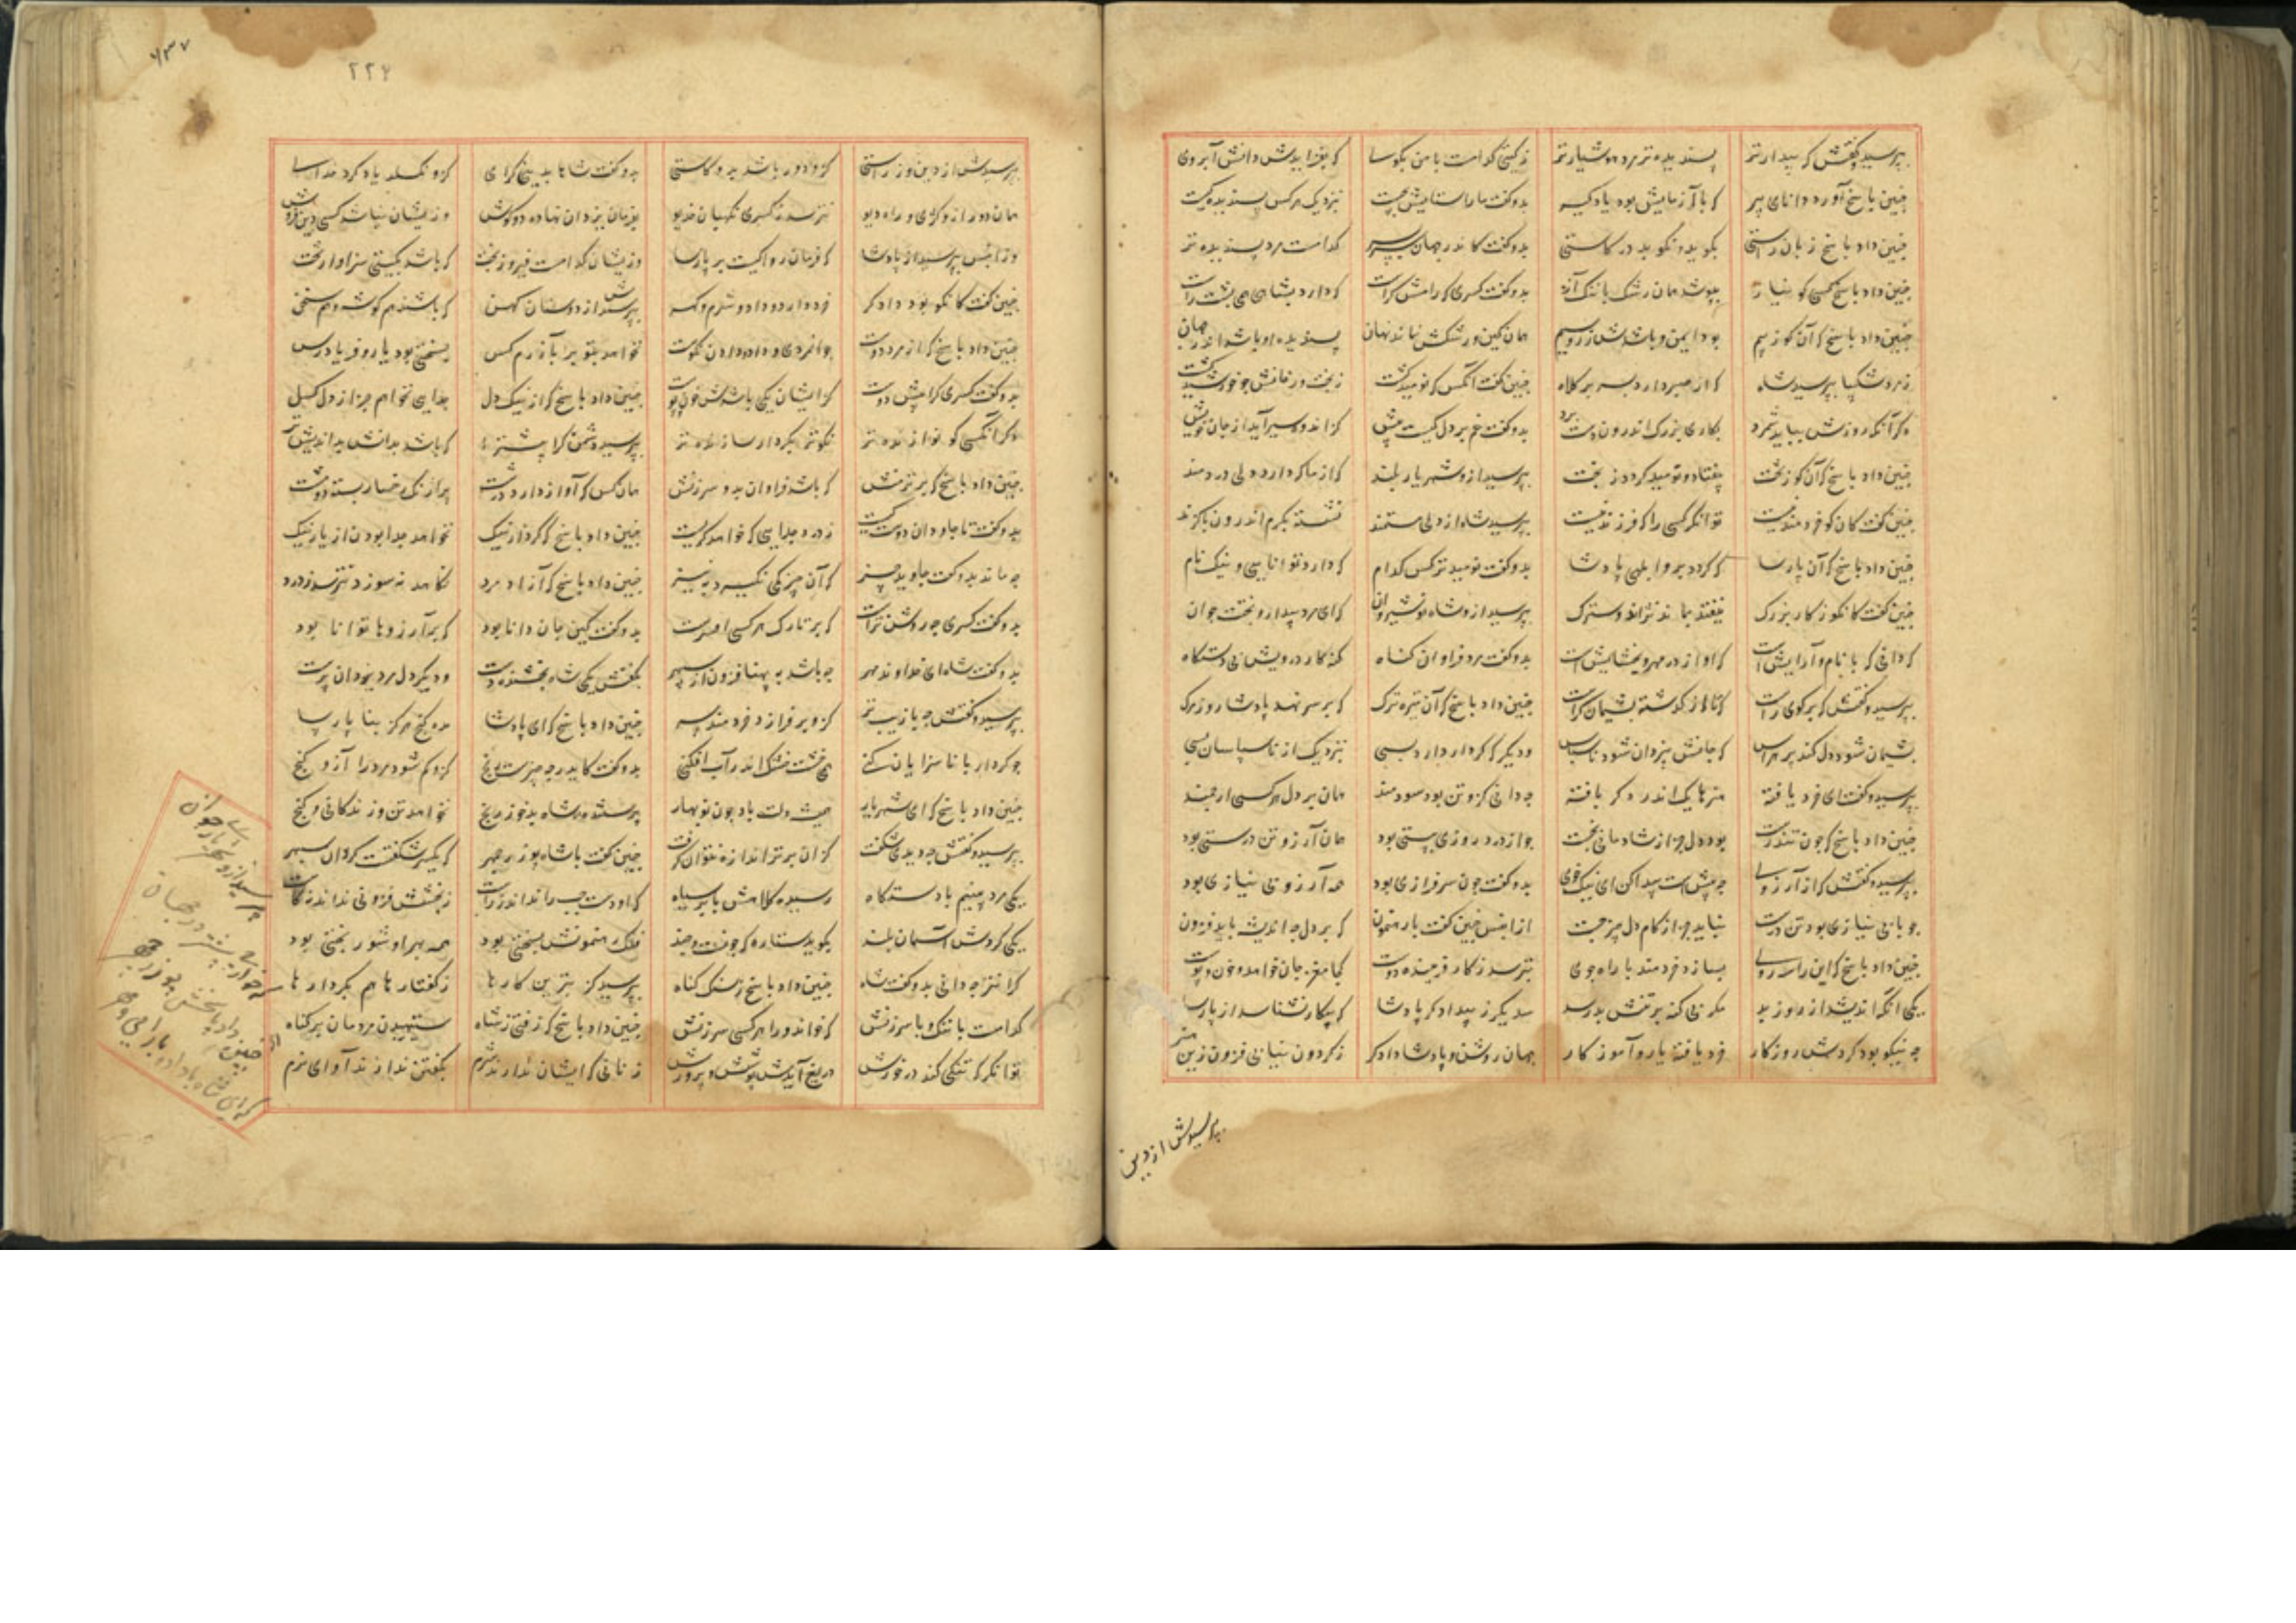 بپرسید و گفتش که بیدارتر پسندیده‌تر مرد هوشیارتر ز گیتی کدامست با من بگو که بفزایدش دانش آبروی
چنین پاسخ آورد دانای پیر که با آزمایش بود یادگیر بدو گفت ما را ستایش بچیست بنزدیک هر کس پسندیده کیست
چنین داد پاسخ زبان راستی بگوید نگوید در کاستی بدو گفت کاندر جهان کدامست مرد پسندیده تر
چنین داد پاسخ کسی کو نیاز بپوشد همان رشک با ننگ آز بدو گفت کسری که رامش کراست که دارد بشادی همی پشت راست
چنین داد پاسخ که آن کو ز بیم بود ایمن و باشدش زر و سیم همان کین و رشکش نماند نهان پسندیده او باشد اندر جهان
ز مرد شکیبا بپرسید شاه که از صبر دارد بسر بر کلاه چنین گفت آنکس که نومید گشت
دگر آنکه روزش بباید شمرد بکاری بزرگ اندرون دست برد بدو گفت غم بر دل کیست بیش کز اندوه سیر آید از جان خویش
چنین داد پاسخ که آن کو ز تخت بیفتاد و نومید گردد ز بخت بپرسید ازو شهریار بلند که از ما که دارد دلی دردمند
چنین گفت کان کو خردمند نیست توانگر کسی را که فرزند نیست بپرسید شاه از دلی مستمند نشسته بگرم اندرون با گزند
چنین داد پاسخ که آن پارسا که گردد برو ابلهی پادشا بدو گفت نومیدتر کس کدام که دارد توانایی و نیک نام
چنین گفت کانکو ز کار بزرگ بیفتد بماند نژند و سترگ بپرسید ازو شاه نوشیروان که ای مرد بیدار و بخت جوان
که دانی که با نام و آرایش است که او از در مهر و بخشایش است بدو گفت مرد فراوان گناه گنه کار درویش بی دستگاه
بپرسید و گفتش که برگوی راست که تا از گذشته پشیمان کراست چنین داد پاسخ که آن تیره ترک که بر سر نهد پادشا روز مرگ
پشیمان شود دل کند پر هراس که جانش بیزدان شود ناسپاس و دیگر که کردار دارد بسی بنزدیک از ناسپاسان بسی
بپرسید و گفت ای خرد یافته هنرها یک اندر دگر بافته چه دانی کزو تن بود سودمند همان بر دل هر کسی ارجمند
چنین داد پاسخ که چون تندرست بود دل جز از شادمانی نجست چو از درد روزی بسستی بود همان آرزو تن درستی بود
بپرسید و گفتش که از آرزوی چه بیش است پیدا کن ای نیک خوی بدو گفت چون سرفرازی بود همه آرزو بی نیازی بود
چو با بی نیازی بود تن درست نباید جز از کام دل چیز جست ازان پس چنین گفت با رهنمون که بر دل چه اندیشه باید فزون
چنین داد پاسخ که این را سه روی بسازد خردمند با راه جوی بترسد ز کار فریبنده دوست کجا مغز جان خواهد و خون و پوست
یکی آنکه اندیشد از روز بد مگر بی گنه بر تنش بد رسد سدیگر ز بیدادگر پادشا که پیکار نشناسد از پارسا
چه نیکو بود گردش روزگار خرد یافته یار و آموزگار جهان روشن و پادشا دادگر ز گردون نیابی فزون زین هنر
پرسیدش از دین
۲۲۶
بپرسیدش از دین و از راستی کزو دور باشد بد و کاستی بدو گفت شاها بدینی گرای کزو نگسلد یاد کرد خدای
همان دوری از کژی و راه دیو بترسد ز کسری نگهبان خدیو بفرمان یزدان نهاده دو گوش وزیشان نباشد کسی دین فروش
وزان پس بپرسید از پادشا که فرمان روا کیست بر پارسا وزیشان کدامست فیروز بخت که باشد بگیتی سزاوار تخت
چنین گفت کانکو بود دادگر خرد دارد و داد و شرم و گهر بپرسیدش از دوستان کهن که باشند هم گوشه و هم سخن
چنین داد پاسخ که از مرد دوست جوانمردی و داد دادن نکوست نخواهد بتو بد بآزرم کس بسختی بود یار و فریادرس
بدو گفت کسری کرا بیش دوست کز ایشان یکی باشدش خون و پوست چنین داد پاسخ که از نیک دل جدایی نخواهم جز از دل گسل
دگر آنکسی کو نوازنده تر نکوتر بکردار سازنده تر بپرسید دشمن کرا بیشتر که باشد بدانش بداندیش تر
چنین داد پاسخ که برترمنش که باشد فراوان بدو سرزنش همان کس که آواز دارد درشت پر آژنگ رخسار بسته دو مشت
بدو گفت تا جاودان دوست کیست ز درد جدایی که خواهد گریست چنین داد پاسخ که کردار نیک نخواهد جدا بودن از یار نیک
چه ماند بدو گفت جاوید چیز که آن چیز کمی نگیرد به نیز چنین داد پاسخ که آزاد مرد نکاهد نه سوزد نترسد ز درد
بدو گفت کسری چه روشن تراست که بر تارک هر کسی افسرست بدو گفت کین جان دانا بود که بر آرزوها توانا بود
بدو گفت شاه ای خداوند مهر چه باشد به پهنا فزون از سپهر بگفتش یکی شاه بخشنده دست و دیگر دل مرد یزدان پرست
بپرسید و گفتش چه با زیب تر کزو بر فرازد خردمند سر چنین داد پاسخ که ای پادشا مده گنج هرگز بنا پارسا
چو کردار با ناسزایان کنی همی خشت خشک اندر آب افکنی بدو گفت کاندر چه چیزست رنج کزو کم شود مرد را آز و گنج
چنین داد پاسخ که ای شهریار همیشه دلت باد چون نوبهار پرستنده شاه بدخو ز رنج نخواهد تن و زندگانی و گنج
بپرسید و گفتش چه دیدی شگفت کز ان برتر اندازه نتوان گرفت چنین گفت با شاه بوزرجمهر که یکسر شگفتست گردان سپهر
یکی مرد بینیم با دستگاه رسیده کلاهش بابر سیاه که او دست چپ را نداند ز راست ز بخشش فزونی نداند ز کاست
یکی گردش آسمان بلند بگوید ستاره که چونست و چند فلک رهنمونش بسختی بود همه بهر او شور بختی بود
گرانتر چه دانی بدو گفت شاه چنین داد پاسخ ز سنگ گناه بپرسید کز بترین کارها ز گفتارها هم بکردارها
کدامست با ننگ و با سرزنش که خواند ورا هر کسی سرزنش چنین داد پاسخ که زفتی ز شاه ستیهیدن مردمان بر گناه
توانگر که تنگی کند در خورش دریغ آیدش پوشش و پرورش زنانی که ایشان ندارند شرم بگفتن ندارند آوای نرم